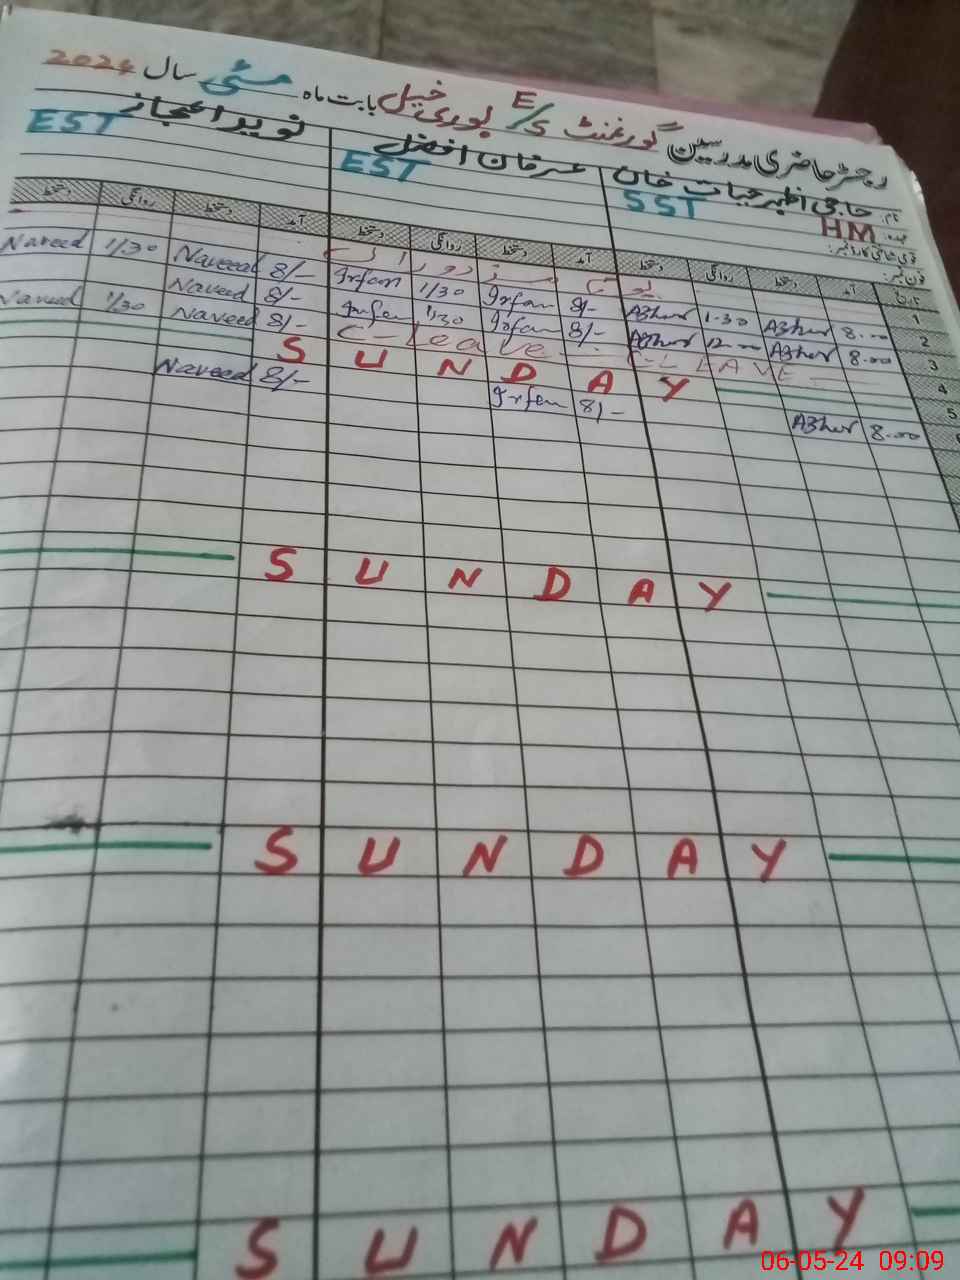 رجسٹر حاضری مدرسین گورنمنٹ E/S بوری خیل بابت ماہ مئی سال 2024
نام: حاجی اظہر حیات خان عرفان افضل نوید اعجاز
عہدہ: HM SST EST EST
قومی شناختی کارڈ نمبر:
فون نمبر:
تاریخ آمد دستخط روانگی دستخط آمد دستخط روانگی دستخط آمد دستخط روانگی دستخط
1 یوم مزدوراں
2 8.00 Azher 1.30 Azher 8/- Irfan 1/30 Irfan 8/- Naveed 1/30 Naveed
3 8.00 Azher 12.00 Azher 8/- Irfan 1/30 Irfan 8/- Naveed
4 C-LEAVE C-Leave 8/- Naveed 1/30 Naveed
5 SUNDAY
8.00 Azher 8/- Irfan 8/- Naveed
SUNDAY
SUNDAY
SUNDAY
06-05-24 09:09